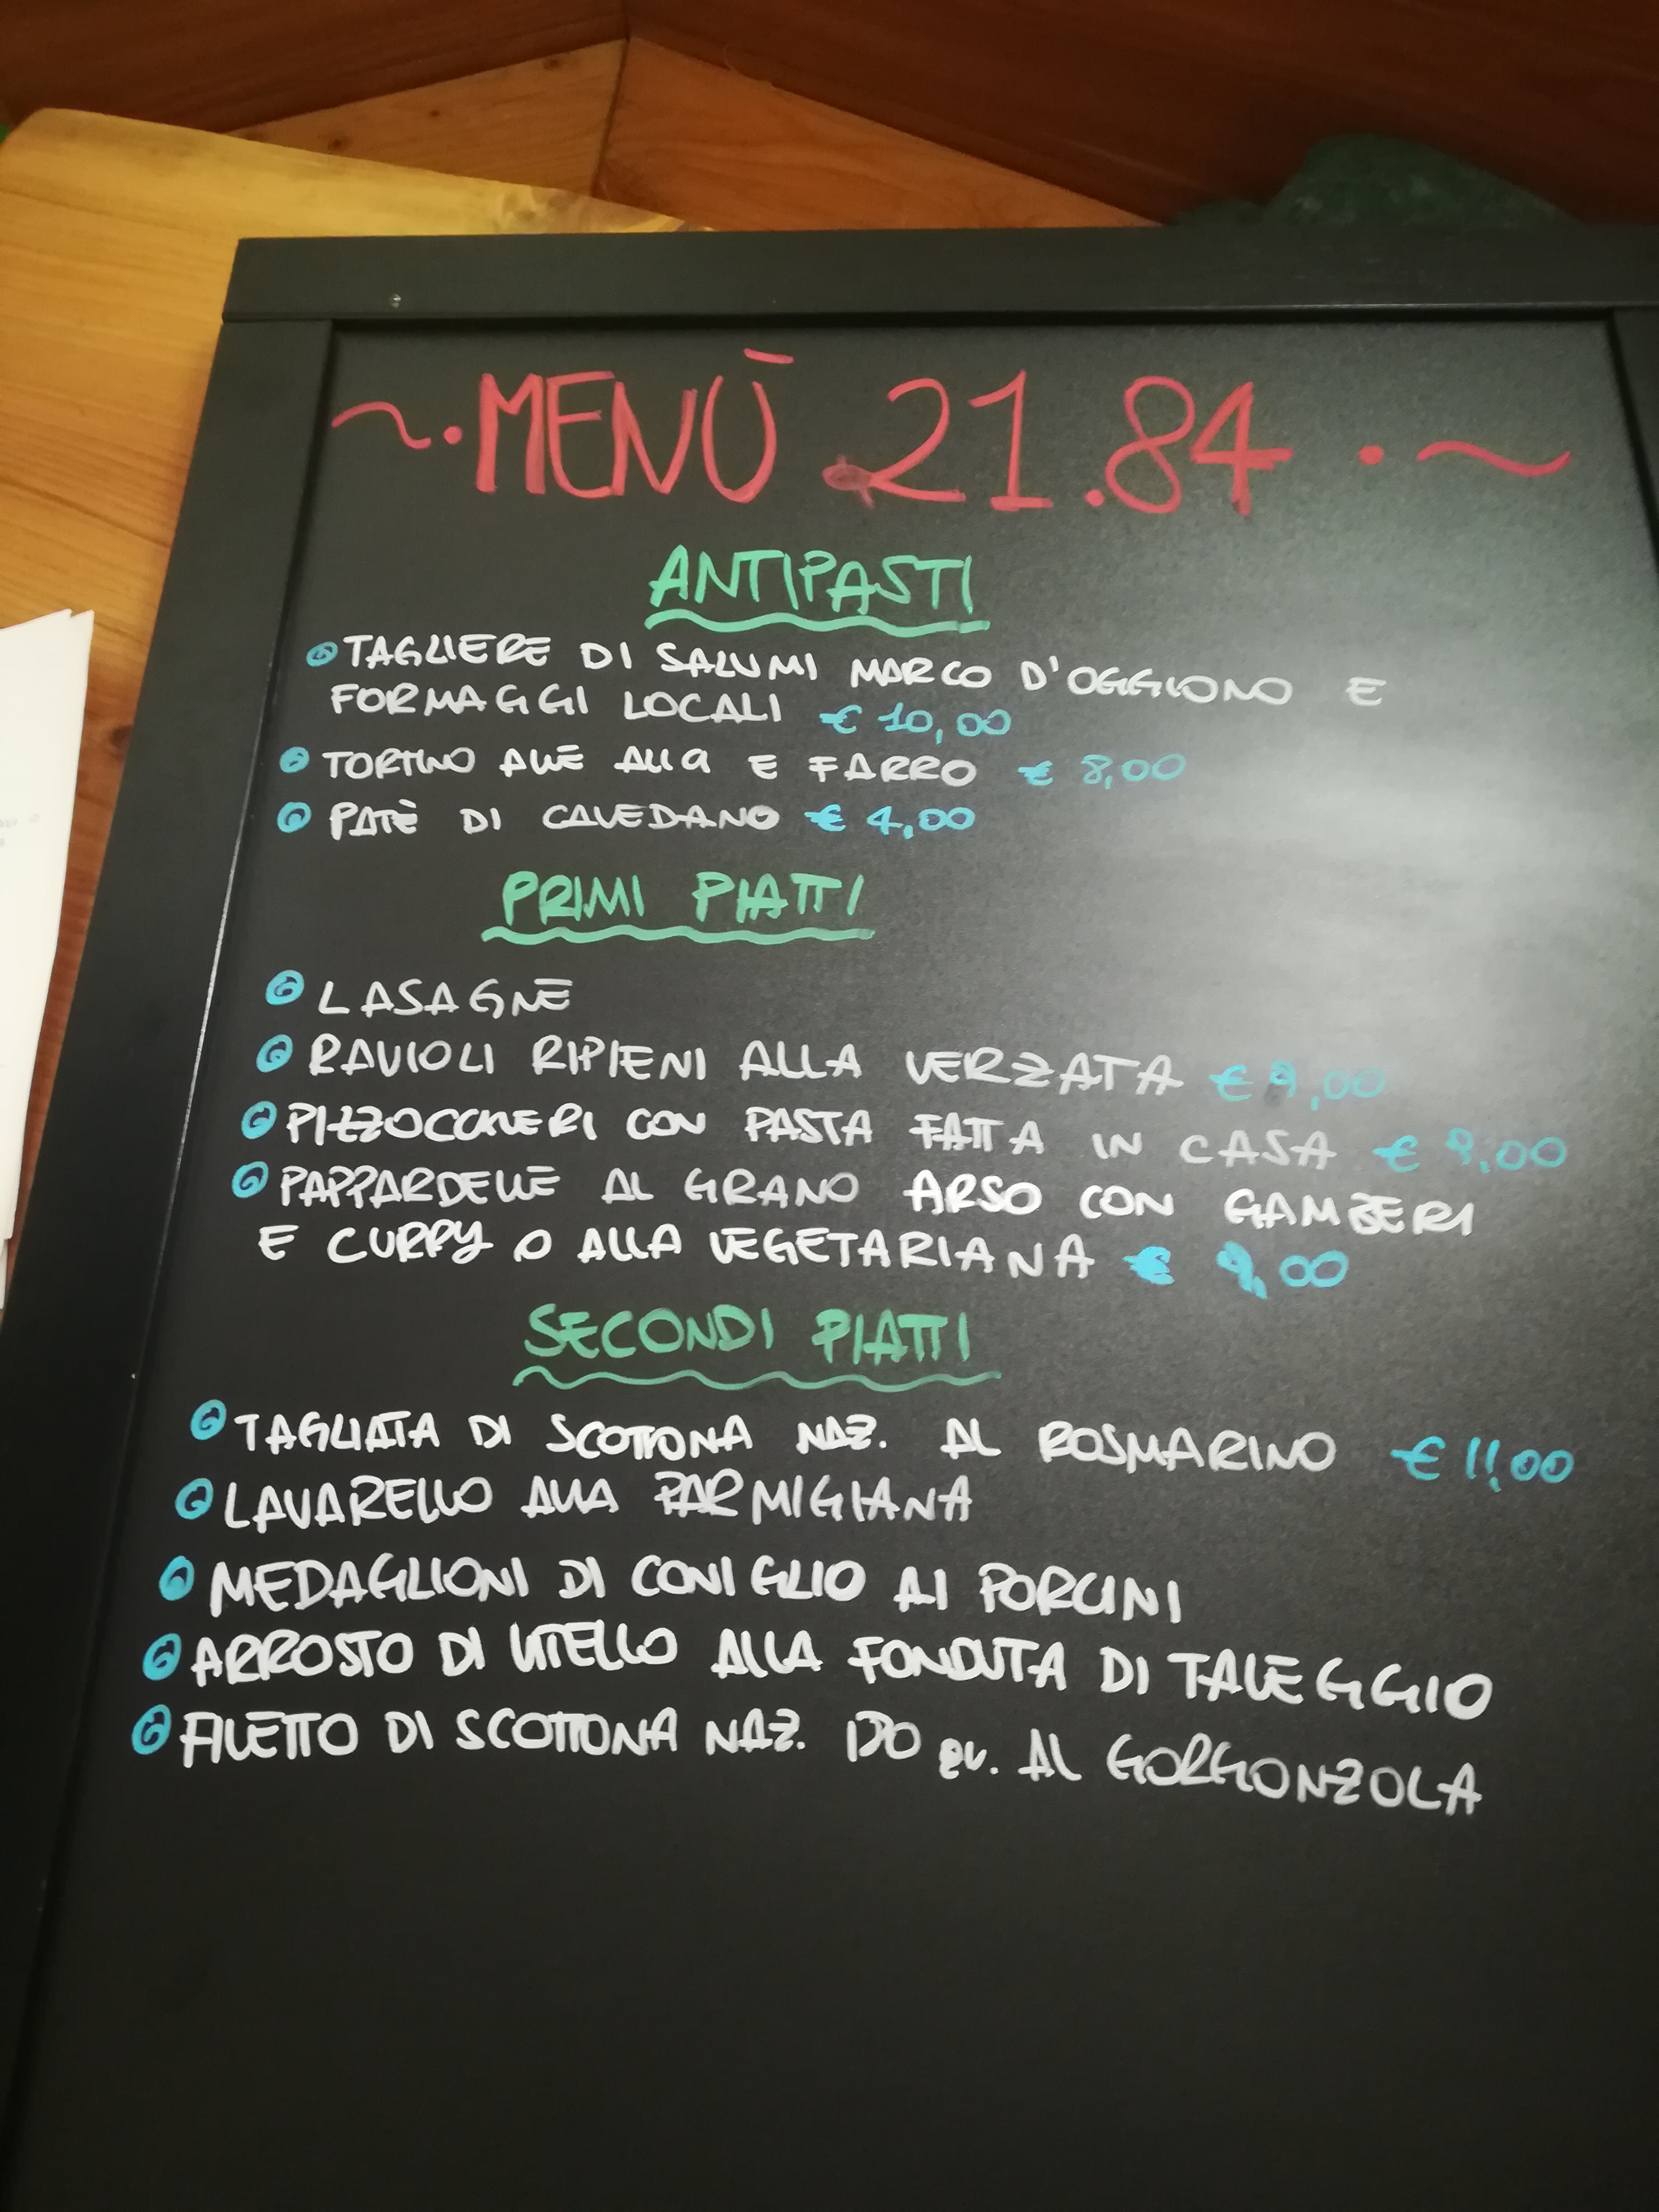 ~·MENÙ 21.84·~
ANTIPASTI
TAGLIERE DI SALUMI MARCO D'OGGIONO E
FORMAGGI LOCALI € 10,00
TORTINO ALLE E FARRO € 8,00
PATÈ DI CAVEDANO € 4,00
PRIMI PIATTI
LASAGNE
RAVIOLI RIPIENI ALLA VERZATA € 9,00
PIZZOCCHERI CON PASTA FATTA IN CASA € 9,00
PAPPARDELLE AL GRANO ARSO CON GAMBERI
E CURRY O ALLA VEGETARIANA € 9,00
SECONDI PIATTI
TAGLIATA DI SCOTTONA NAZ. AL ROSMARINO € 11,00
LAVARELLO ALLA PARMIGIANA
MEDAGLIONI DI CONIGLIO AI PORCINI
ARROSTO DI VITELLO ALLA FONDUTA DI TALEGGIO
FILETTO DI SCOTTONA NAZ. AL GORGONZOLA